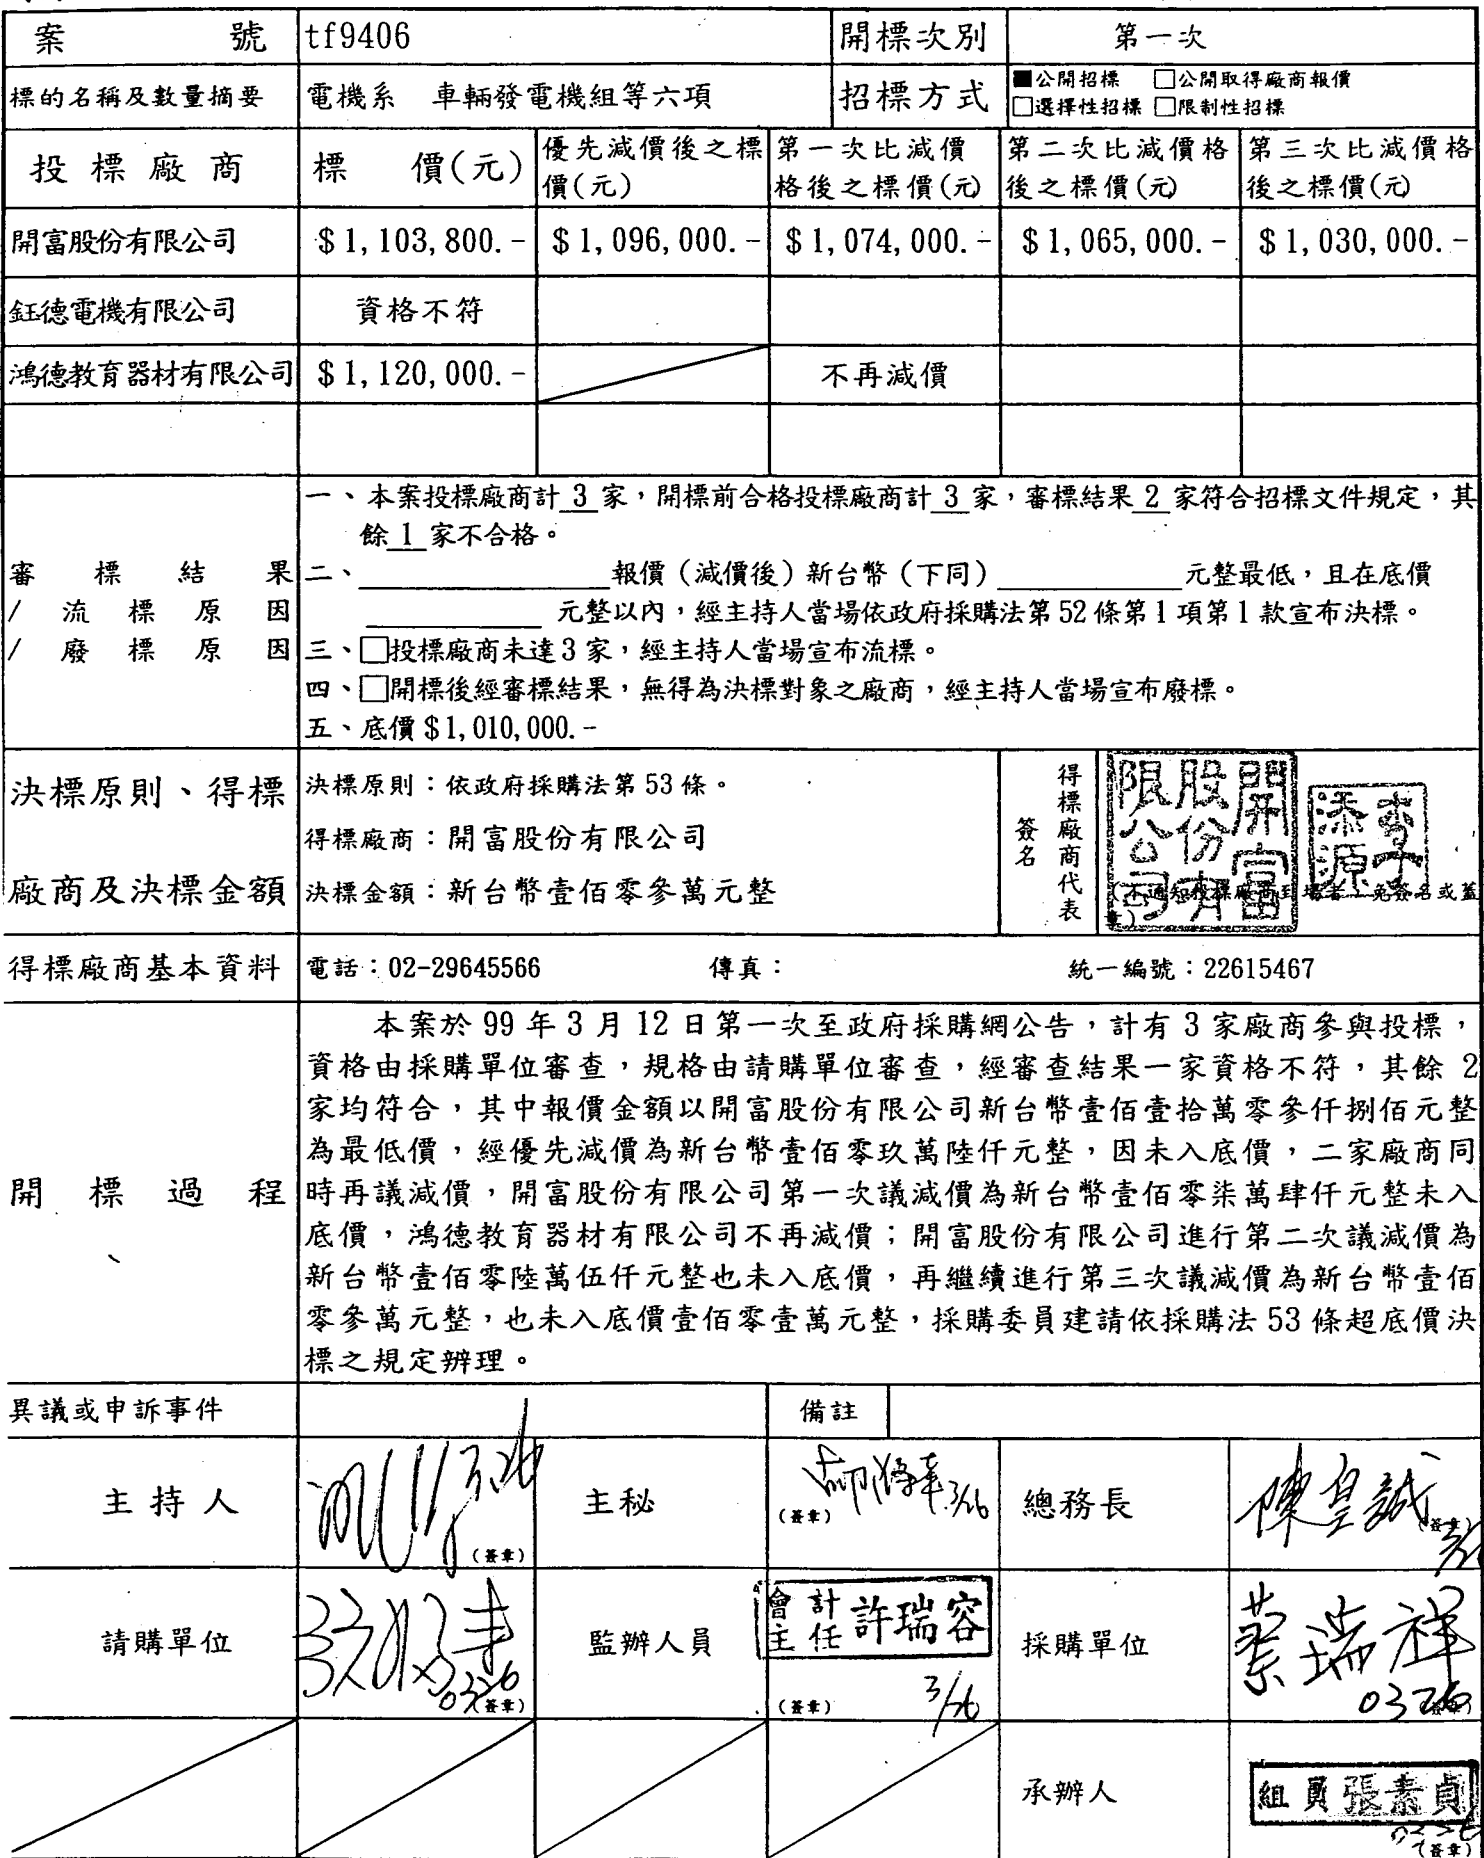 案 號 tf9406 開標次別 第一次
標的名稱及數量摘要 電機系 車輛發電機組等六項 招標方式 ■公開招標 □公開取得廠商報價
□選擇性招標 □限制性招標
投標廠商 標 價(元) 優先減價後之標價(元) 第一次比減價格後之標價(元) 第二次比減價格後之標價(元) 第三次比減價格後之標價(元)
開富股份有限公司 $1,103,800.- $1,096,000.- $1,074,000.- $1,065,000.- $1,030,000.-
鈺德電機有限公司 資格不符
鴻德教育器材有限公司 $1,120,000.- 不再減價
審標結果
/流標原因
/廢標原因
一、本案投標廠商計 3 家，開標前合格投標廠商計 3 家，審標結果 2 家符合招標文件規定，其
餘 1 家不合格。
二、 報價（減價後）新台幣（下同） 元整最低，且在底價
元整以內，經主持人當場依政府採購法第52條第1項第1款宣布決標。
三、□投標廠商未達3家，經主持人當場宣布流標。
四、□開標後經審標結果，無得為決標對象之廠商，經主持人當場宣布廢標。
五、底價$1,010,000.-
決標原則、得標
廠商及決標金額
決標原則：依政府採購法第53條。
得標廠商：開富股份有限公司
決標金額：新台幣壹佰零參萬元整
得標廠商代表
簽名
開富股份有限公司
李添源
(不通知投標廠商到場者，免簽名或蓋
章)
得標廠商基本資料 電話：02-29645566 傳真： 統一編號：22615467
開標過程
本案於 99 年 3 月 12 日第一次至政府採購網公告，計有 3 家廠商參與投標，
資格由採購單位審查，規格由請購單位審查，經審查結果一家資格不符，其餘 2
家均符合，其中報價金額以開富股份有限公司新台幣壹佰壹拾萬零參仟捌佰元整
為最低價，經優先減價為新台幣壹佰零玖萬陸仟元整，因未入底價，二家廠商同
時再議減價，開富股份有限公司第一次議減價為新台幣壹佰零柒萬肆仟元整未入
底價，鴻德教育器材有限公司不再減價；開富股份有限公司進行第二次議減價為
新台幣壹佰零陸萬伍仟元整也未入底價，再繼續進行第三次議減價為新台幣壹佰
零參萬元整，也未入底價壹佰零壹萬元整，採購委員建請依採購法 53 條超底價決
標之規定辦理。
異議或申訴事件 備註
主持人 (簽章) 主秘 3/26 (簽章) 總務長 陳皇誠 (簽章)
請購單位 0326 (簽章) 監辦人員 會計主任 許瑞容 3/26 (簽章) 採購單位 蔡瑞祥 0326 (簽章)
承辦人 組員 張素貞 (簽章)